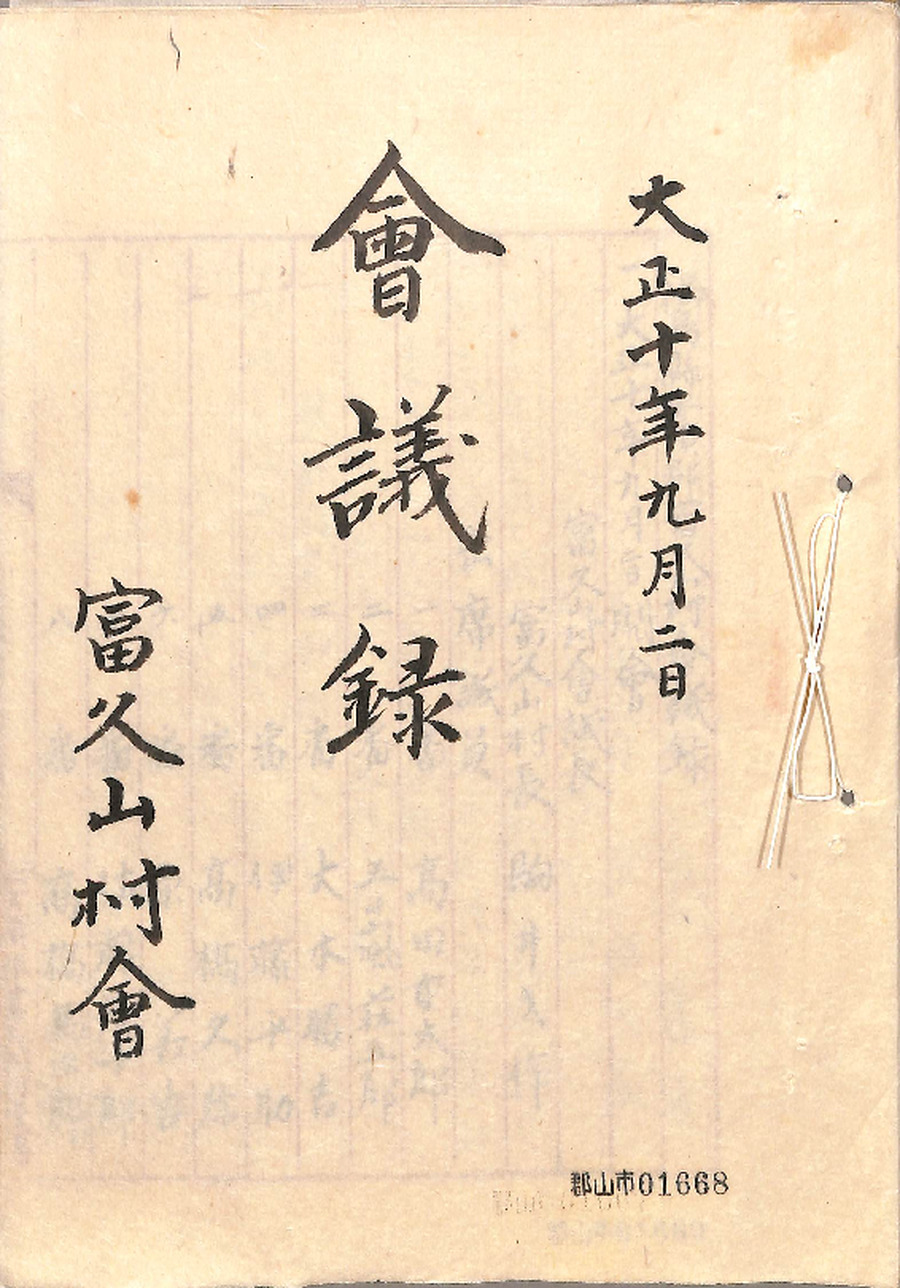 大正十年九月二日
會議録
富久山村會
郡山市01668